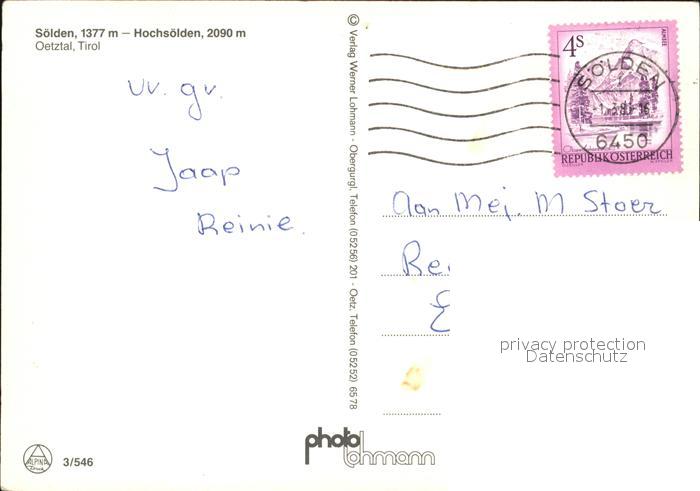 Sölden, 1377 m — Hochsölden, 2090 m
Oetztal, Tirol
vv. gr.
Jaap
Reinie.
3/546
© Verlag Werner Lohmann - Obergurgl, Telefon (05256) 201 - Oetz, Telefon (05252) 6578
photo lohmann
4S
ALMSEE
SÖLDEN
6450
REPUBLIK ÖSTERREICH
Aan Mej. M Stoer
privacy protection
Datenschutz
ALPINA